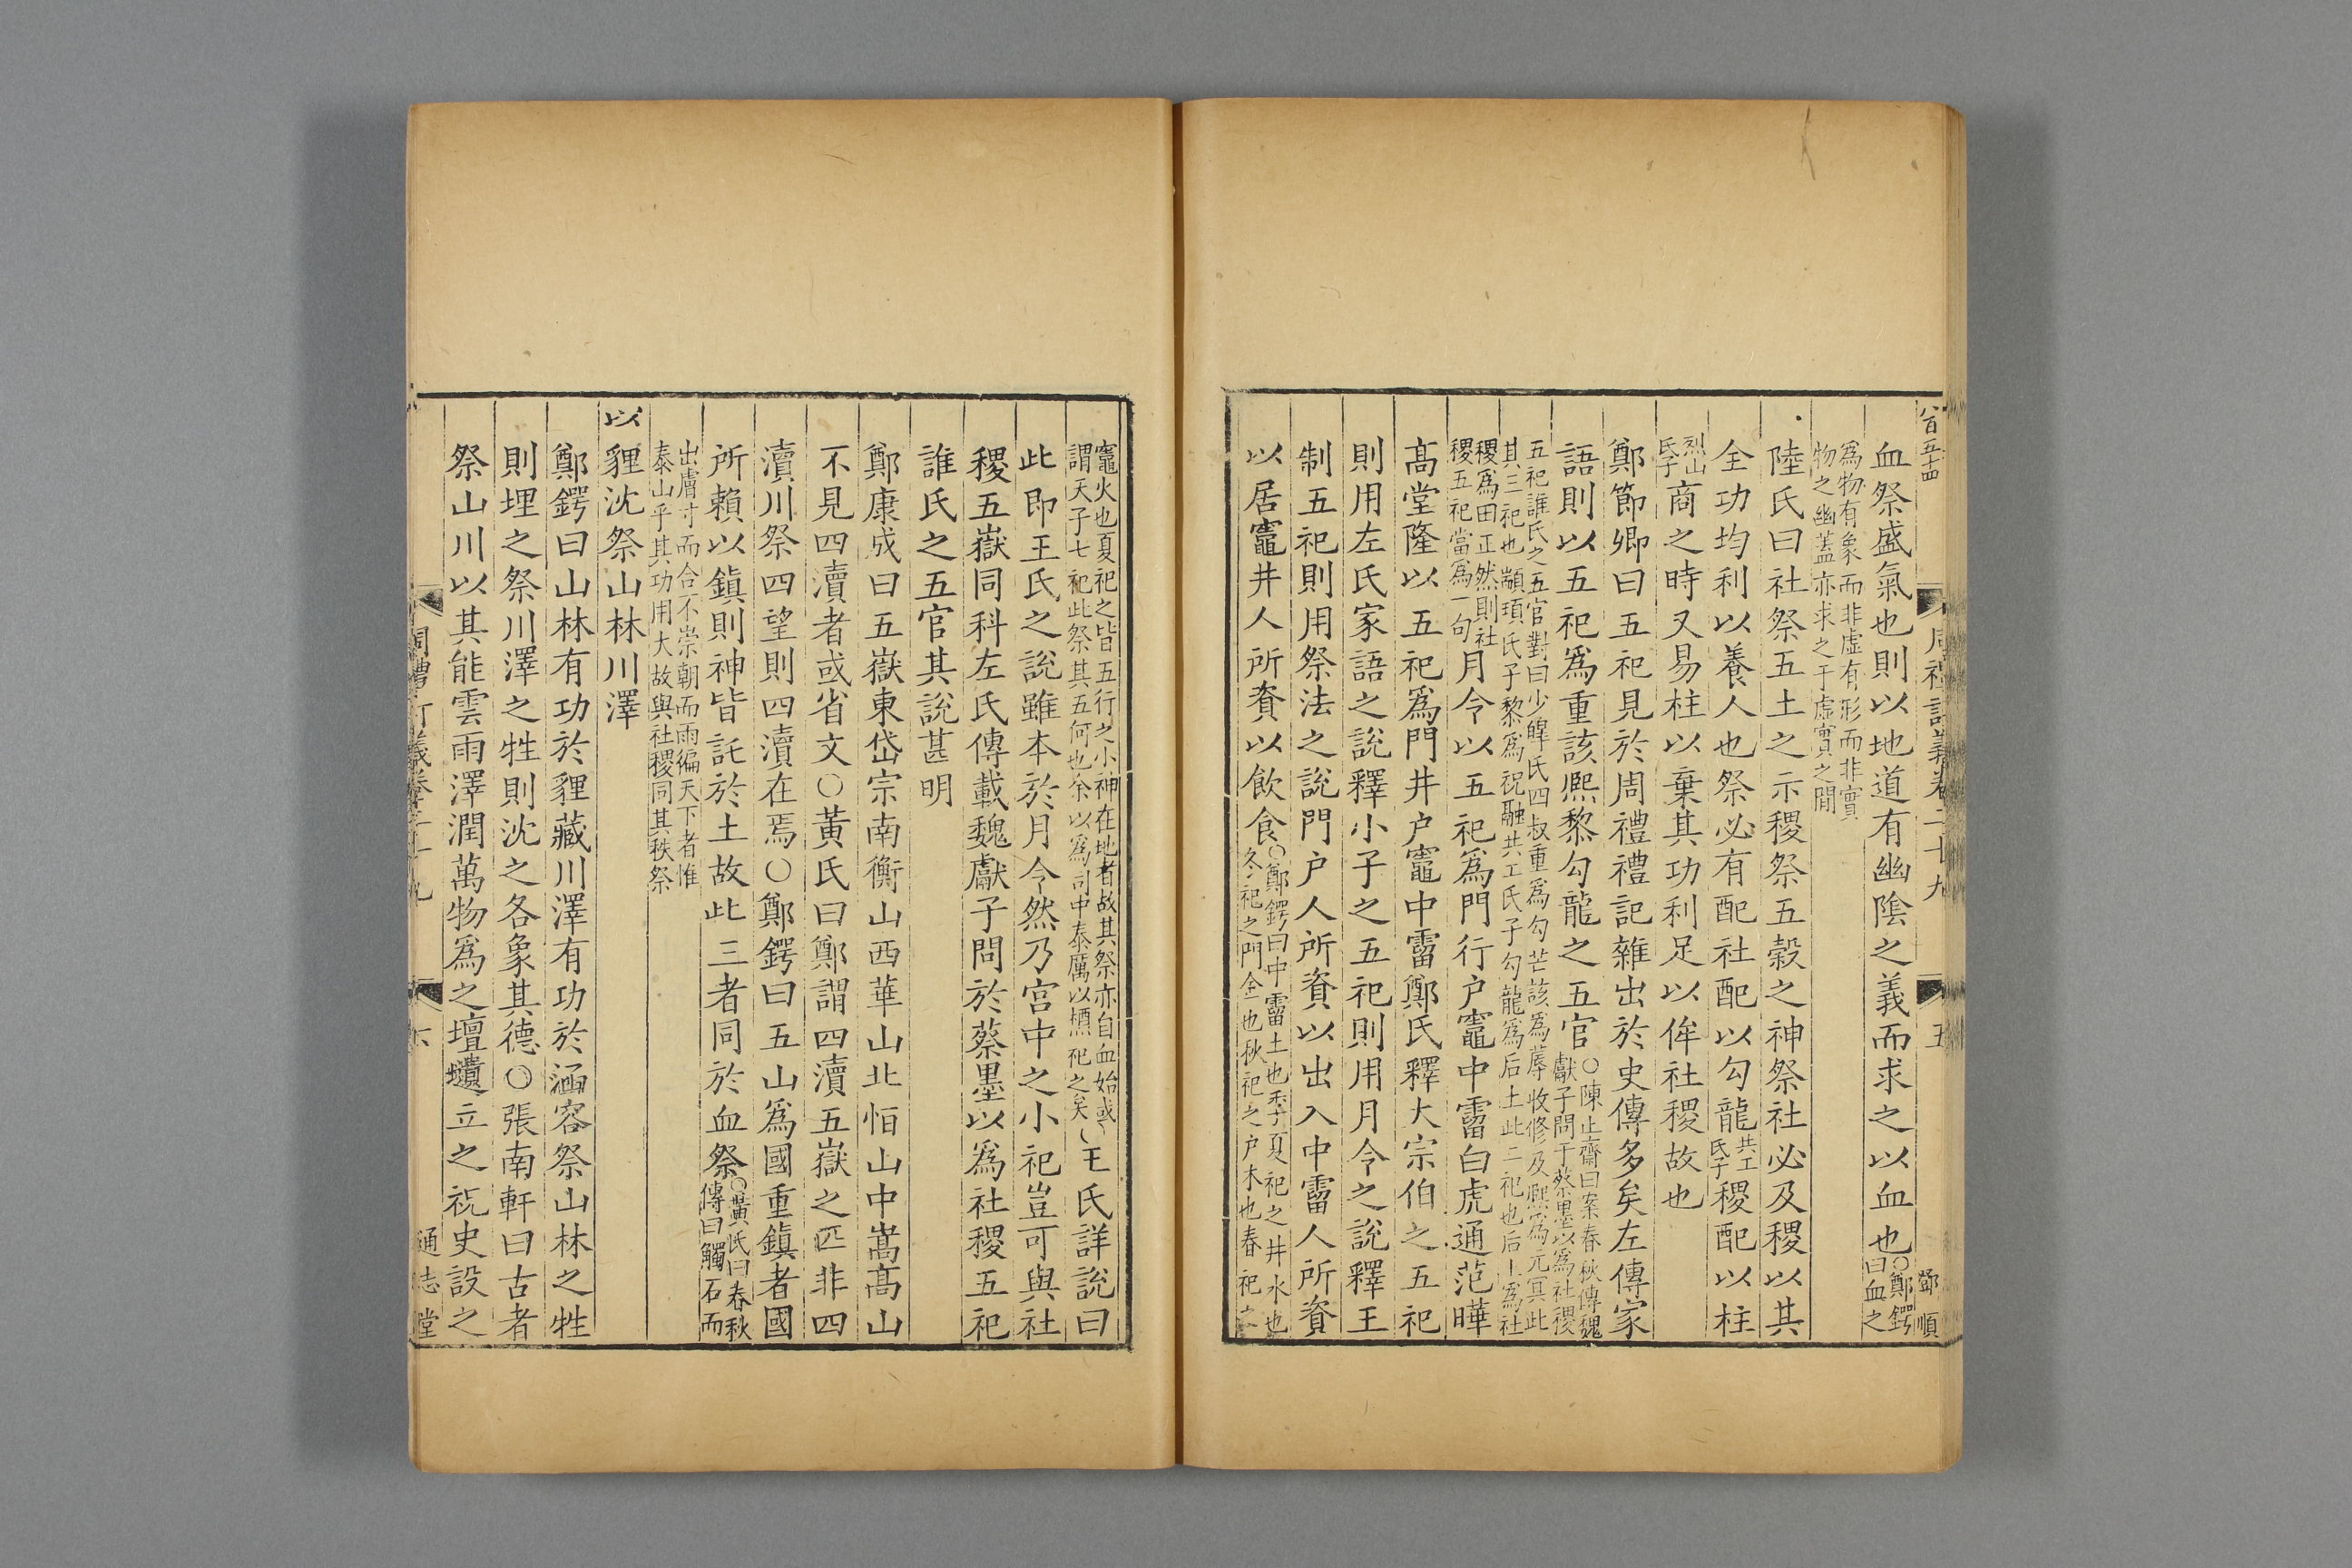 八百五十四
周禮訂義卷二十九
五
鄧順
血祭盛氣也則以地道有幽陰之義而求之以血也○鄭鍔曰血之
爲物有象而非虛有形而非實
物之幽蓋亦求之于虛實之間
陸氏曰社祭五土之示稷祭五穀之神祭社必及稷以其
全功均利以養人也祭必有配社配以勾龍共工氏子稷配以柱
烈山氏子商之時又易柱以棄其功利足以侔社稷故也
鄭節卿曰五祀見於周禮禮記雜出於史傳多矣左傳家
語則以五祀爲重該熙黎勾龍之五官○陳止齋曰案春秋傳魏獻子問于蔡墨以爲社稷
五祀誰氏之五官對曰少皞氏四叔重爲勾芒該爲蓐收修及熙爲元冥此
其三祀也顓頊氏子黎爲祝融共工氏子勾龍爲后土此二祀也后土爲社
稷爲田正然則社稷五祀當爲一句月令以五祀爲門行户竈中霤白虎通范曄
高堂隆以五祀爲門井户竈中霤鄭氏釋大宗伯之五祀
則用左氏家語之說釋小子之五祀則用月令之說釋王
制五祀則用祭法之說門户人所資以出入中霤人所資
以居竈井人所資以飲食○鄭鍔曰中霤土也季夏祀之井水也冬祀之門金也秋祀之户木也春祀之
竈火也夏祀之皆五行之小神在地者故其祭亦自血始或
謂天子七祀此祭其五何也余以爲司中泰厲以槱祀之矣○王氏詳說曰
此即王氏之說雖本於月令然乃宮中之小祀豈可與社
稷五嶽同科左氏傳載魏獻子問於蔡墨以爲社稷五祀
誰氏之五官其說甚明
鄭康成曰五嶽東岱宗南衡山西華山北恒山中嵩高山
不見四瀆者或省文○黃氏曰鄭謂四瀆五嶽之匹非四
瀆川祭四望則四瀆在焉○鄭鍔曰五山爲國重鎮者國
所賴以鎮則神皆託於土故此三者同於血祭○黃氏曰春秋傳曰觸石而
出膚寸而合不崇朝而雨徧天下者惟
泰山乎其功用大故與社稷同其秩祭
以貍沈祭山林川澤
鄭鍔曰山林有功於貍藏川澤有功於涵容祭山林之牲
則埋之祭川澤之牲則沈之各象其德○張南軒曰古者
祭山川以其能雲雨澤潤萬物爲之壇壝立之祝史設之
周禮訂義卷二十九
六
通志堂